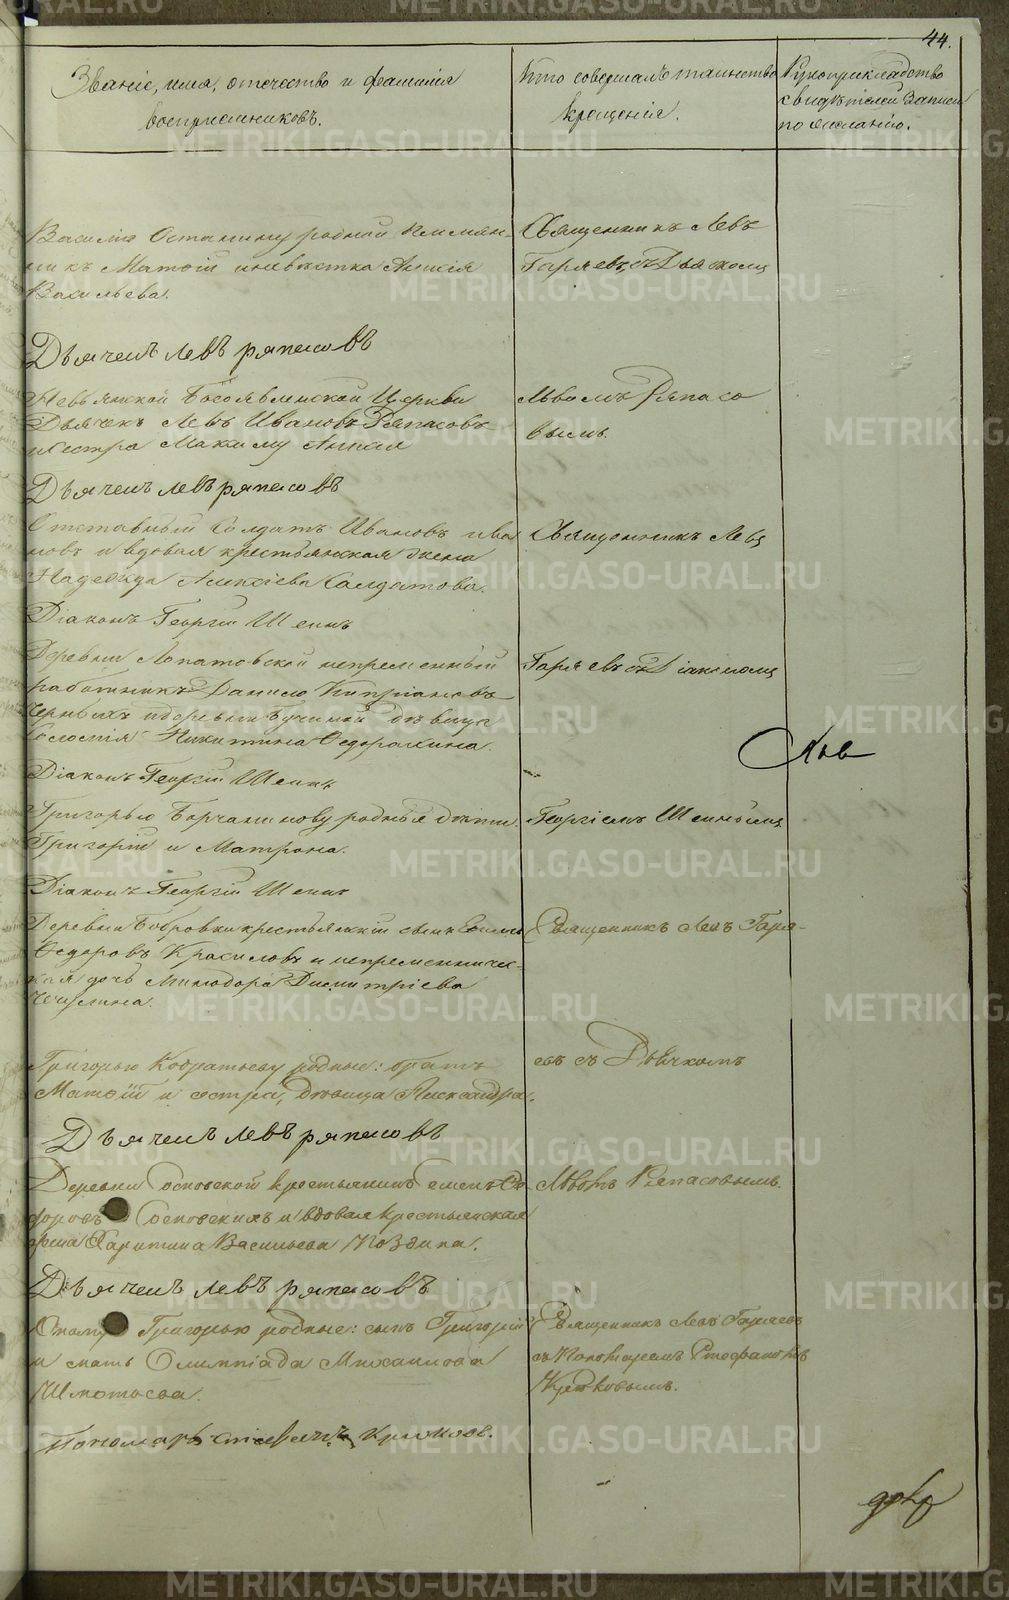 44.
Званіе, имя, отчество и фамилія
воспріемниковъ.
Кто совершалъ таинство
крещенія.
Рукоприкладство
свидѣтелей записи
по желанію.
Василію Останину родной племян-
никъ Матѳій и невѣстка Анисія
Васильева.
Священникъ Левъ
Гаряевъ съ Дьячкомъ
Дьячекъ Левъ Ряпасовъ
Невьянской Богоявленской Церкви
Дьячекъ Левъ Ивановъ Ряпасовъ
и сестра Максиму Анисія
Львомъ Ряпасо
вымъ.
Дьячекъ Левъ Ряпасовъ
Отставный Солдатъ Ивановъ ива
новъ и вдовая крестьянская жена
Надежда Алексіева Салдатова.
Священникъ Левъ
Діаконъ Георгій Шеинъ
Деревни Лопатовской непременный
работникъ Данило Кипріановъ
Черныхъ и деревни дѣвица
Никитина Ѳедорахина.
Гаряевъ съ Діакономъ
Діаконъ Георгій Шеинъ
Григорью родные дѣти
Григорій и Матрона.
Георгіемъ Шеинымъ
Діаконъ Георгій Шеинъ
Деревни Бобровки крестьянскій сынъ
Ѳедоровъ Красиловъ и непременничес-
кая дочь Минодора Димитріева
Чечулина.
Священникъ Левъ Гаря-
Григорью Кодратьеву родные: братъ
Матѳій и сестра, дѣвица Александра.
евъ съ Дьячкомъ
Дьячекъ Левъ Ряпасовъ
Деревни Сосновской крестьянинъ Семенъ Ѳе
доровъ Сосновскихъ и вдовая крестьянская
жена Харитина Васильева Поздина.
Львомъ Ряпасовымъ.
Дьячекъ Левъ Ряпасовъ
Григорью родные: сынъ Григорій
и мать Олимпіада Михаилова
Шмотьева.
Священникъ Левъ Гаряевъ
съ Пономаремъ Стефаномъ
Пономарь
METRIKI.GASO-URAL.RU